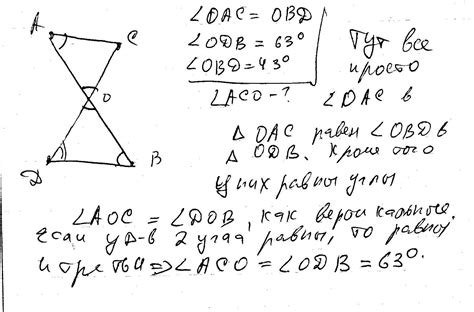 A
C
O
D
B
∠OAC = OBD
∠ODB = 63°
∠OBD = 43°
∠ACO - ?
Тут все
просто
∠OAC в
△ OAC равен ∠OBD в
△ ODB. Кроме того
у них равны углы
∠AOC = ∠DOB, как вертикальные.
если у Δ-в 2 угла равны, то равны
и третьи ⇒ ∠ACO = ∠ODB = 63°.